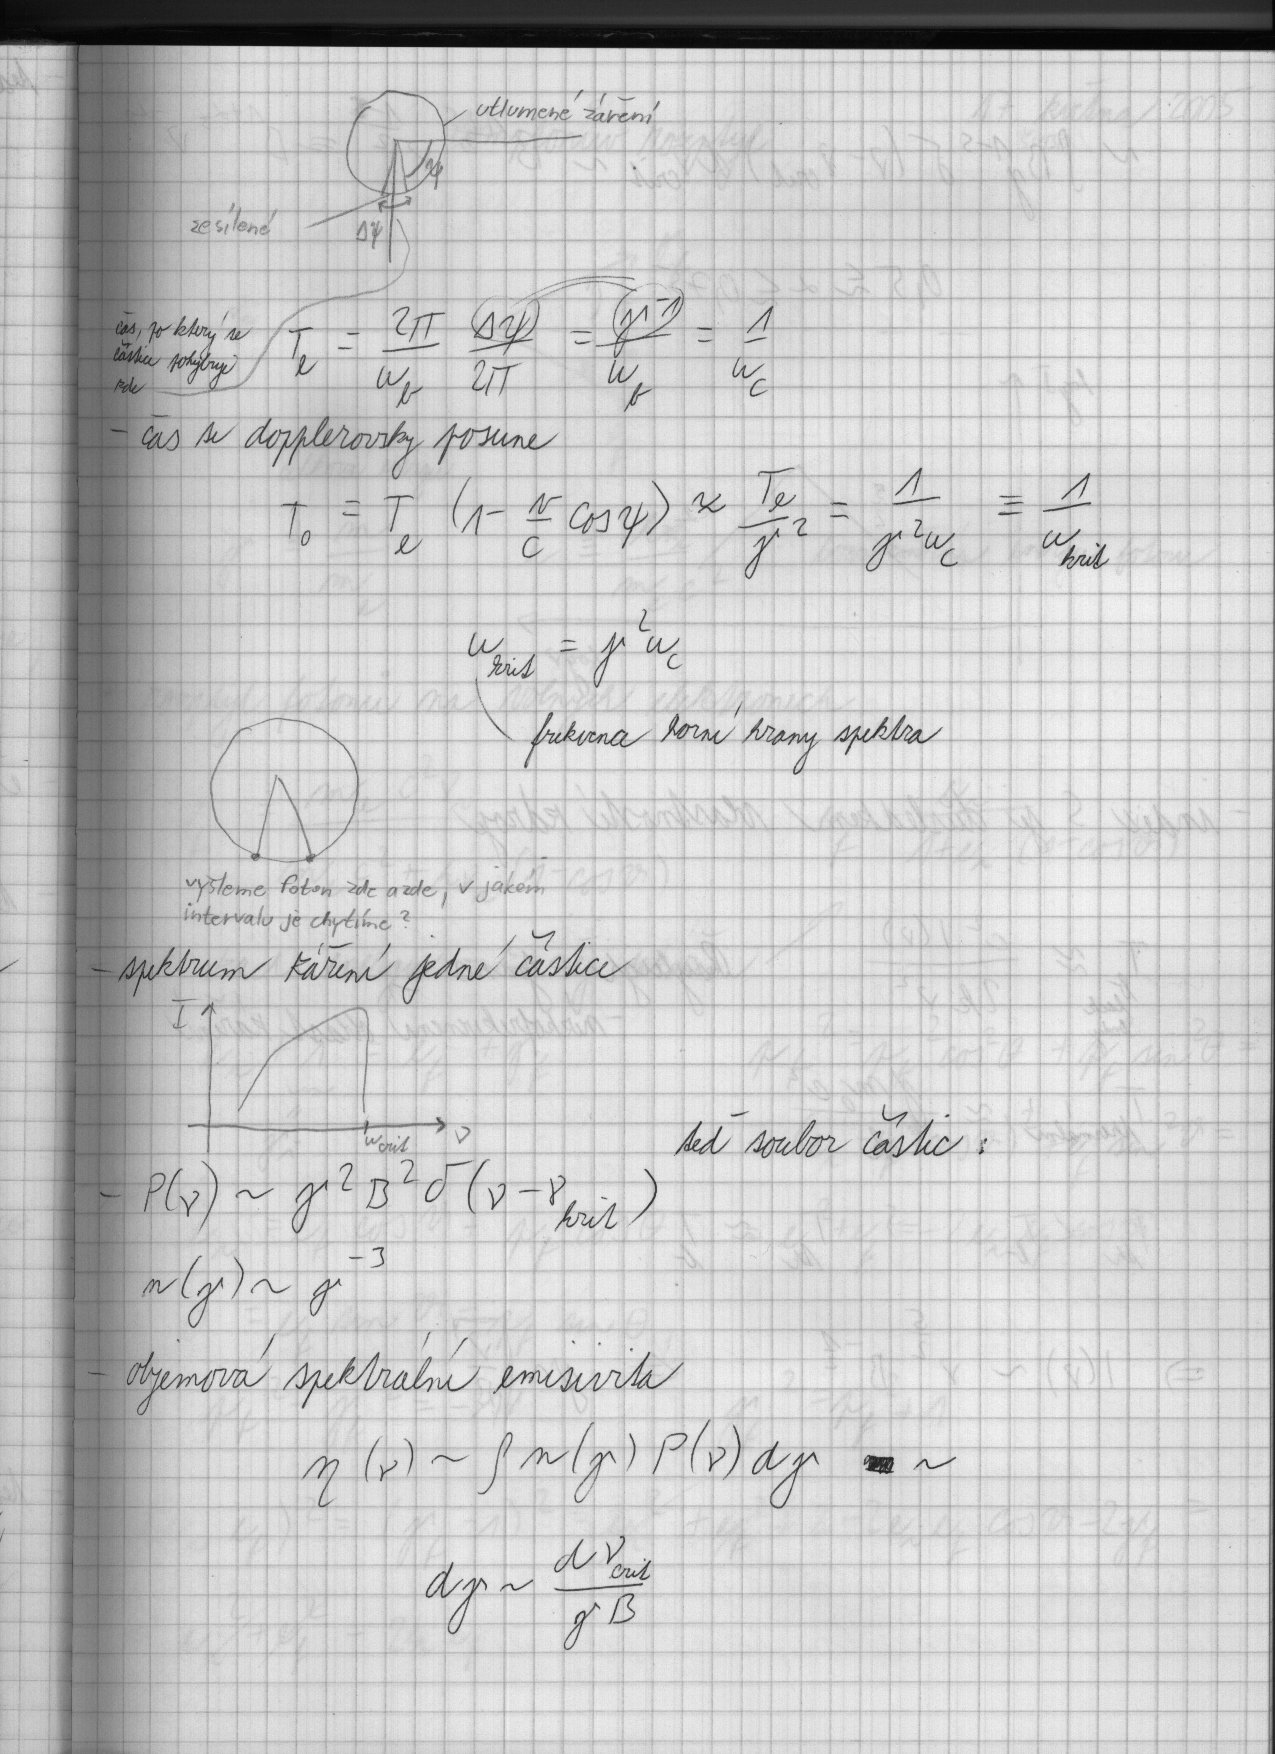 utlumené záření
ψ
zesílené
Δψ
čas, po který se
částice pohybuje
zde
T_e = 2π/ω_b Δψ/2π = γ^-1/ω_b = 1/ω_c
- čas se dopplerovsky posune
T_o = T_e (1 - v/c cos ψ) ≈ T_e/γ^2 = 1/(γ^2 ω_c) ≡ 1/ω_krit
ω_krit = γ^2 ω_c
frekvence horní hrany spektra
vyšleme foton zde a zde, v jakém
intervalu je chytíme?
- spektrum záření jedné částice
I
ω_crit ν
teď soubor částic:
- P(ν) ~ γ^2 B^2 δ(ν - ν_krit)
n(γ) ~ γ^-3
- objemová spektrální emisivita
η(ν) ~ ∫ n(γ) P(ν) dγ ~
dγ ~ dν_crit/(γ B)